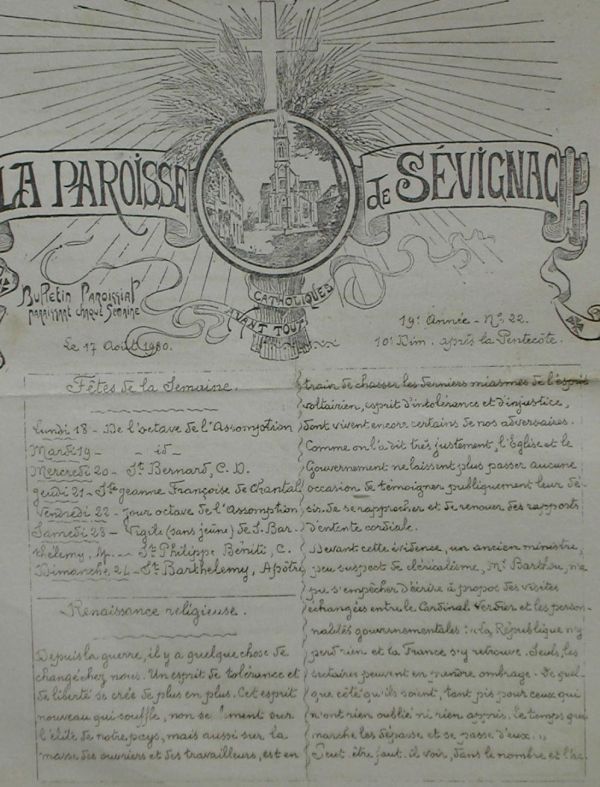 LA PAROISSE de SÉVIGNAC
CATHOLIQUES
AVANT TOUT
Bulletin Paroissial
paraissant chaque Semaine
19e Année - No 22.
Le 17 Août 1930.
10e Dim. après la Pentecôte.
Fêtes de la Semaine.
Lundi 18 - De l'octave de l'Assomption
Mardi 19 - - id -
Mercredi 20 - St Bernard, C. D.
Jeudi 21 - Ste Jeanne Françoise de Chantal
Vendredi 22 - jour octave de l'Assomption
Samedi 23 - Vigile (sans jeûne) de S. Bar-
thélemy, - St Philippe Béniti, C.
Dimanche 24 - St Barthelemy, Apôtre
Renaissance religieuse.
Depuis la guerre, il y a quelque chose de
changé chez nous. Un esprit de tolérance et
de liberté se crée de plus en plus. Cet esprit
nouveau qui souffle, non seulement sur
l'élite de notre pays, mais aussi sur la
masse des ouvriers et des travailleurs, est en
train de chasser les derniers miasmes de l'esprit
voltairien, esprit d'intolérance et d'injustice,
dont vivent encore certains de nos adversaires.
Comme on l'a dit très justement, l'Eglise et le
Gouvernement ne laissent plus passer aucune
occasion de témoigner publiquement leur dé-
sir de se rapprocher et de renouer des rapports
d'entente cordiale.
Devant cette évidence, un ancien ministre,
peu suspect de cléricalisme, Mr Barthou, n'a
pu s'empêcher d'écrire à propos des visites
échangées entre le Cardinal Verdier et les person-
nalités gouvernementales : "La République n'y
perd rien et la France s'y retrouve. Seuls, les
sectaires peuvent en prendre ombrage. De quel-
que côté qu'ils soient, tant pis pour ceux qui
n'ont rien oublié ni rien appris. Le temps qui
marche les dépasse et se passe d'eux."
Peut être faut-il voir, dans le nombre et l'ac-